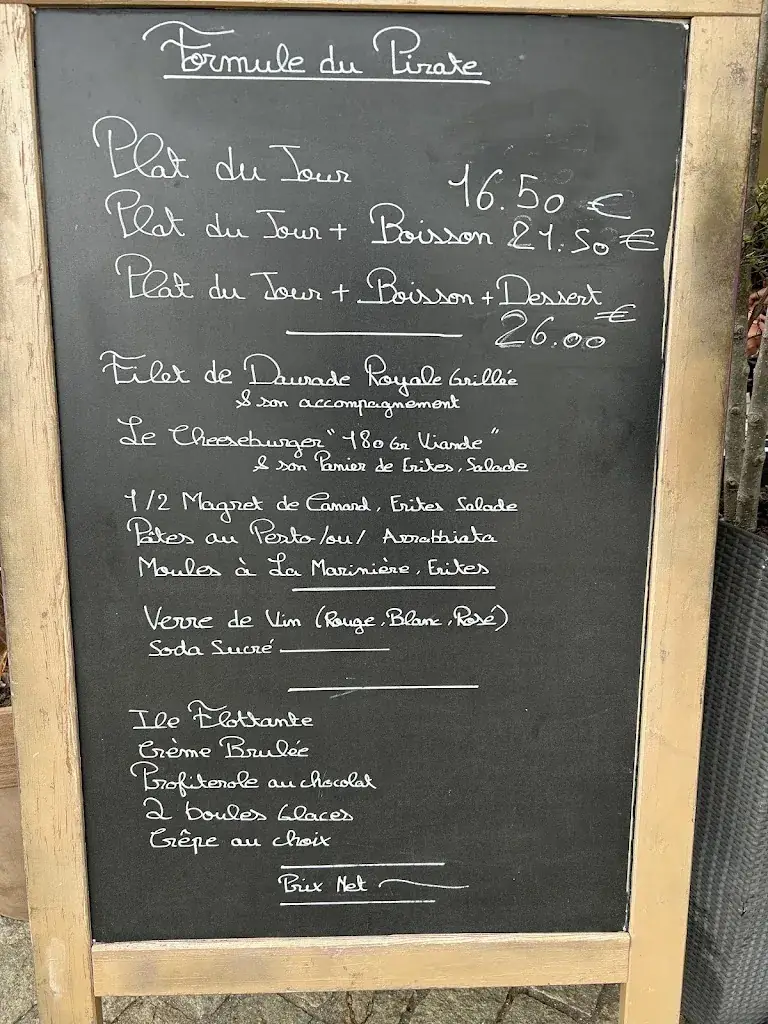 Formule du Pirate
Plat du Jour 16.50 €
Plat du Jour + Boisson 21.50 €
Plat du Jour + Boisson + Dessert
26.00 €
Filet de Daurade Royale Grillée
& son accompagnement
Le Cheeseburger "180 Gr Viande"
& son Panier de Frites, Salade
1/2 Magret de Canard, Frites Salade
Pâtes au Pesto /ou/ Arrabhiata
Moules à La Marinière, Frites
Verre de Vin (Rouge, Blanc, Rosé)
Soda Sucré
Ile Flottante
Crème Brulée
Profiterole au chocolat
2 boules Glaces
Crêpe au choix
Prix Net